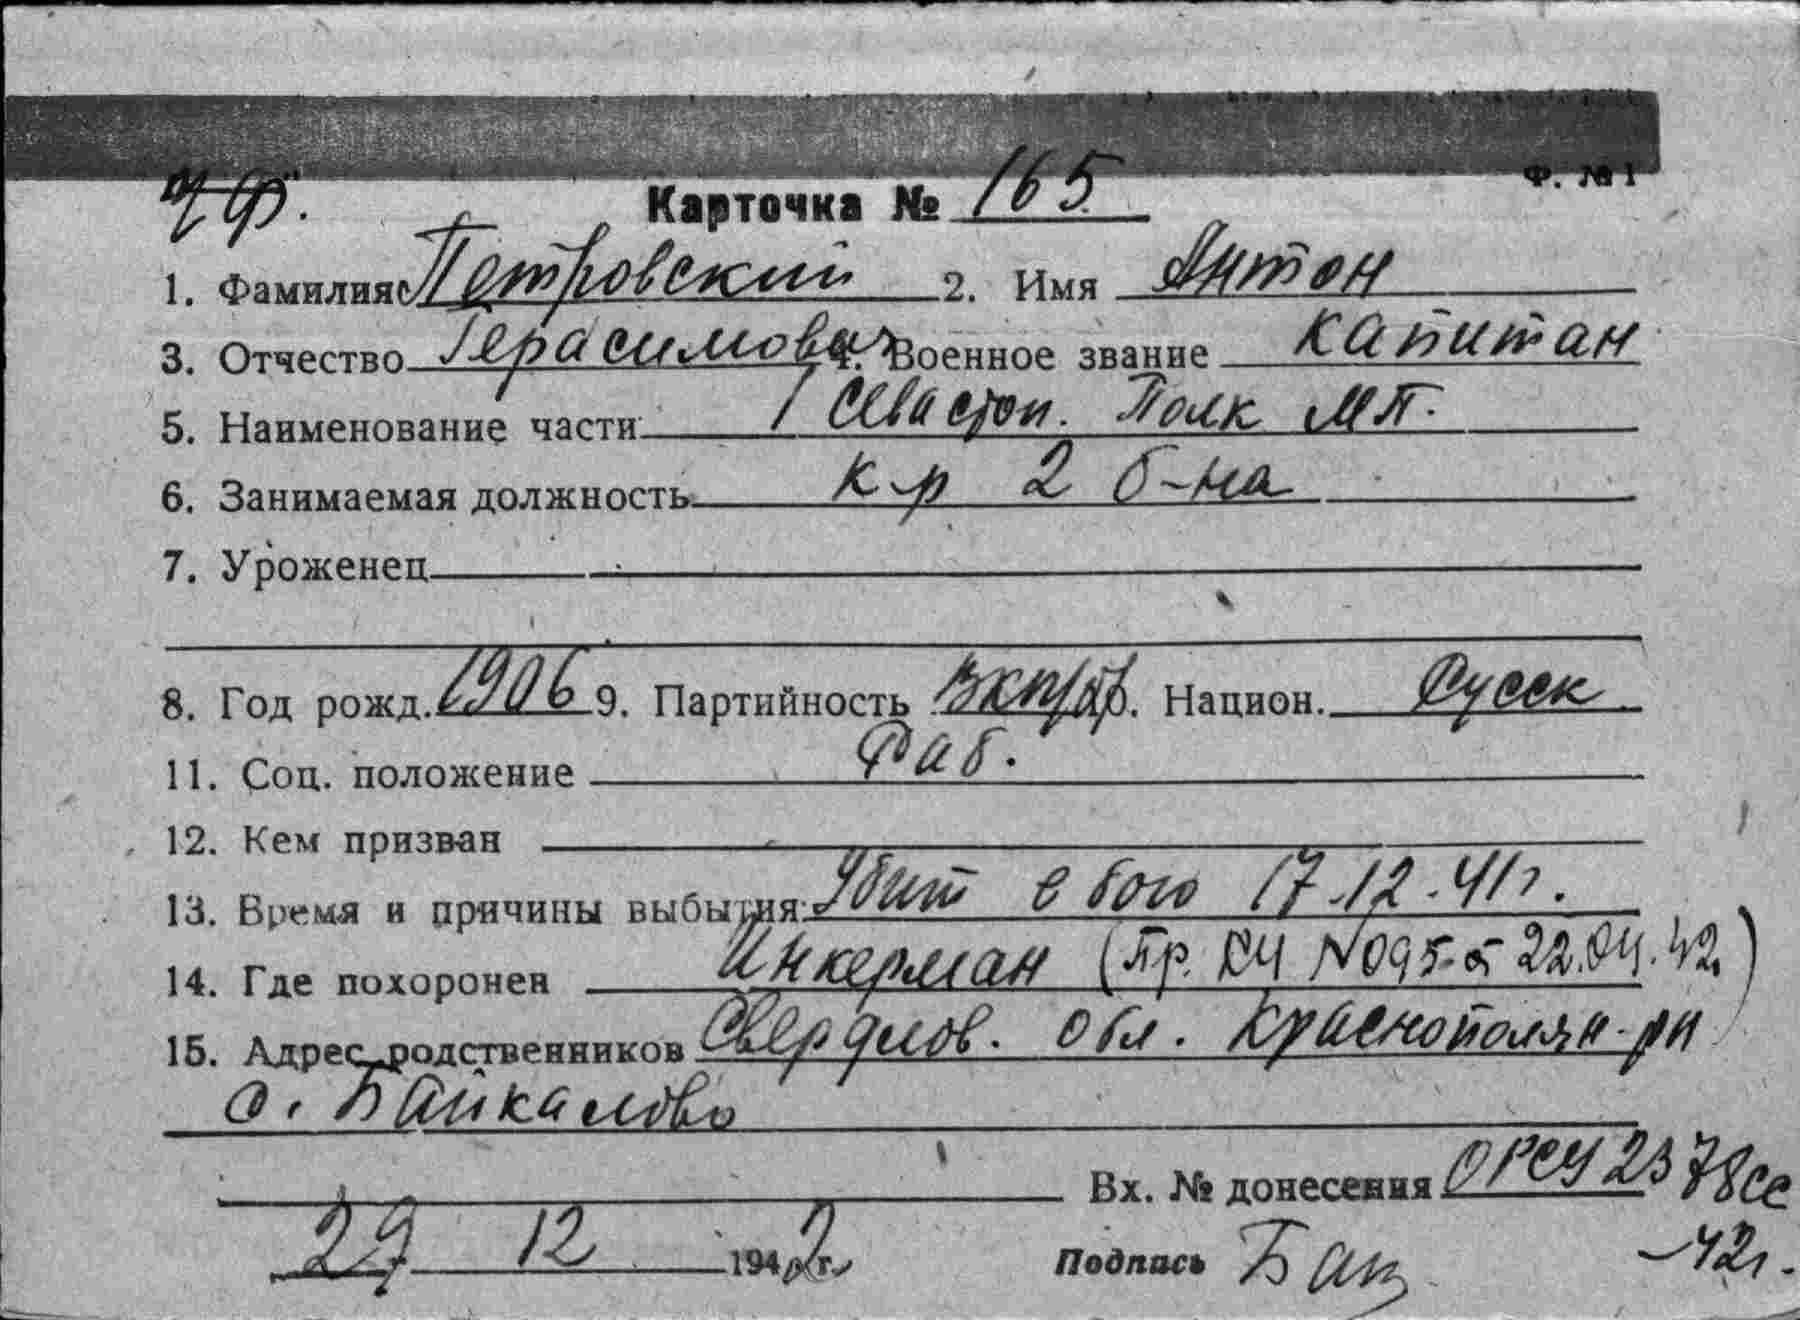 Ф. № 1
ч.ф.
Карточка № 165
1. Фамилия Петровский 2. Имя Антон
3. Отчество Герасимович 4. Военное звание капитан
5. Наименование части 1 Севастоп. Полк МП.
6. Занимаемая должность к-р 2 б-на
7. Уроженец
8. Год рожд. 1906 9. Партийность ВКП/б/ 10. Национ. Русск
11. Соц. положение Раб.
12. Кем призван
13. Время и причины выбытия: Убит в бою 17.12.41г.
14. Где похоронен Инкерман (Пр. №095 от 22.04.42)
15. Адрес родственников Свердлов. обл. Краснополян. рн
с. Байкалово
Вх. № донесения ОРСУ 2378сс
-42г.
29 12 1942 г. Подпись